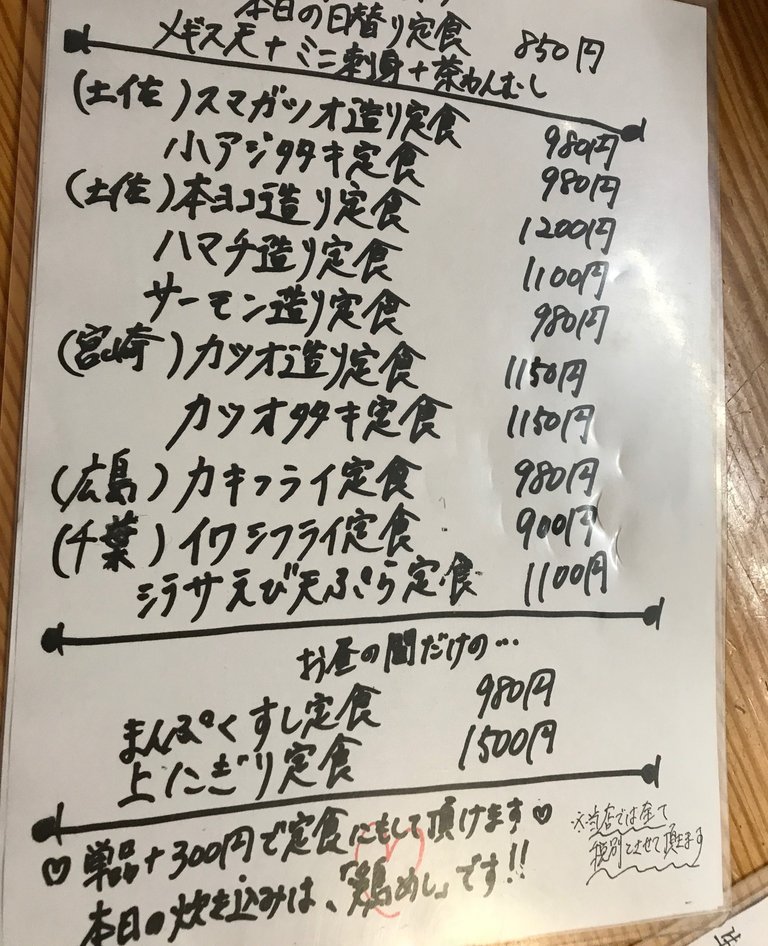 本日の日替り定食 850円
メギス天+ミニ刺身+茶わんむし
(土佐)スマガツオ造り定食 980円
小アジタタキ定食 980円
(土佐)本ヨコ造り定食 1200円
ハマチ造り定食 1100円
サーモン造り定食 980円
(宮崎)カツオ造り定食 1150円
カツオタタキ定食 1150円
(広島)カキフライ定食 980円
(千葉)イワシフライ定食 900円
シラサえび天ぷら定食 1100円
お昼の間だけの…
まんぷくすし定食 980円
上にぎり定食 1500円
♡単品+300円で定食にもして頂けます♡
本日の炊き込みは、「鶏めし」です!!
※当店では全て
税別とさせて頂きます